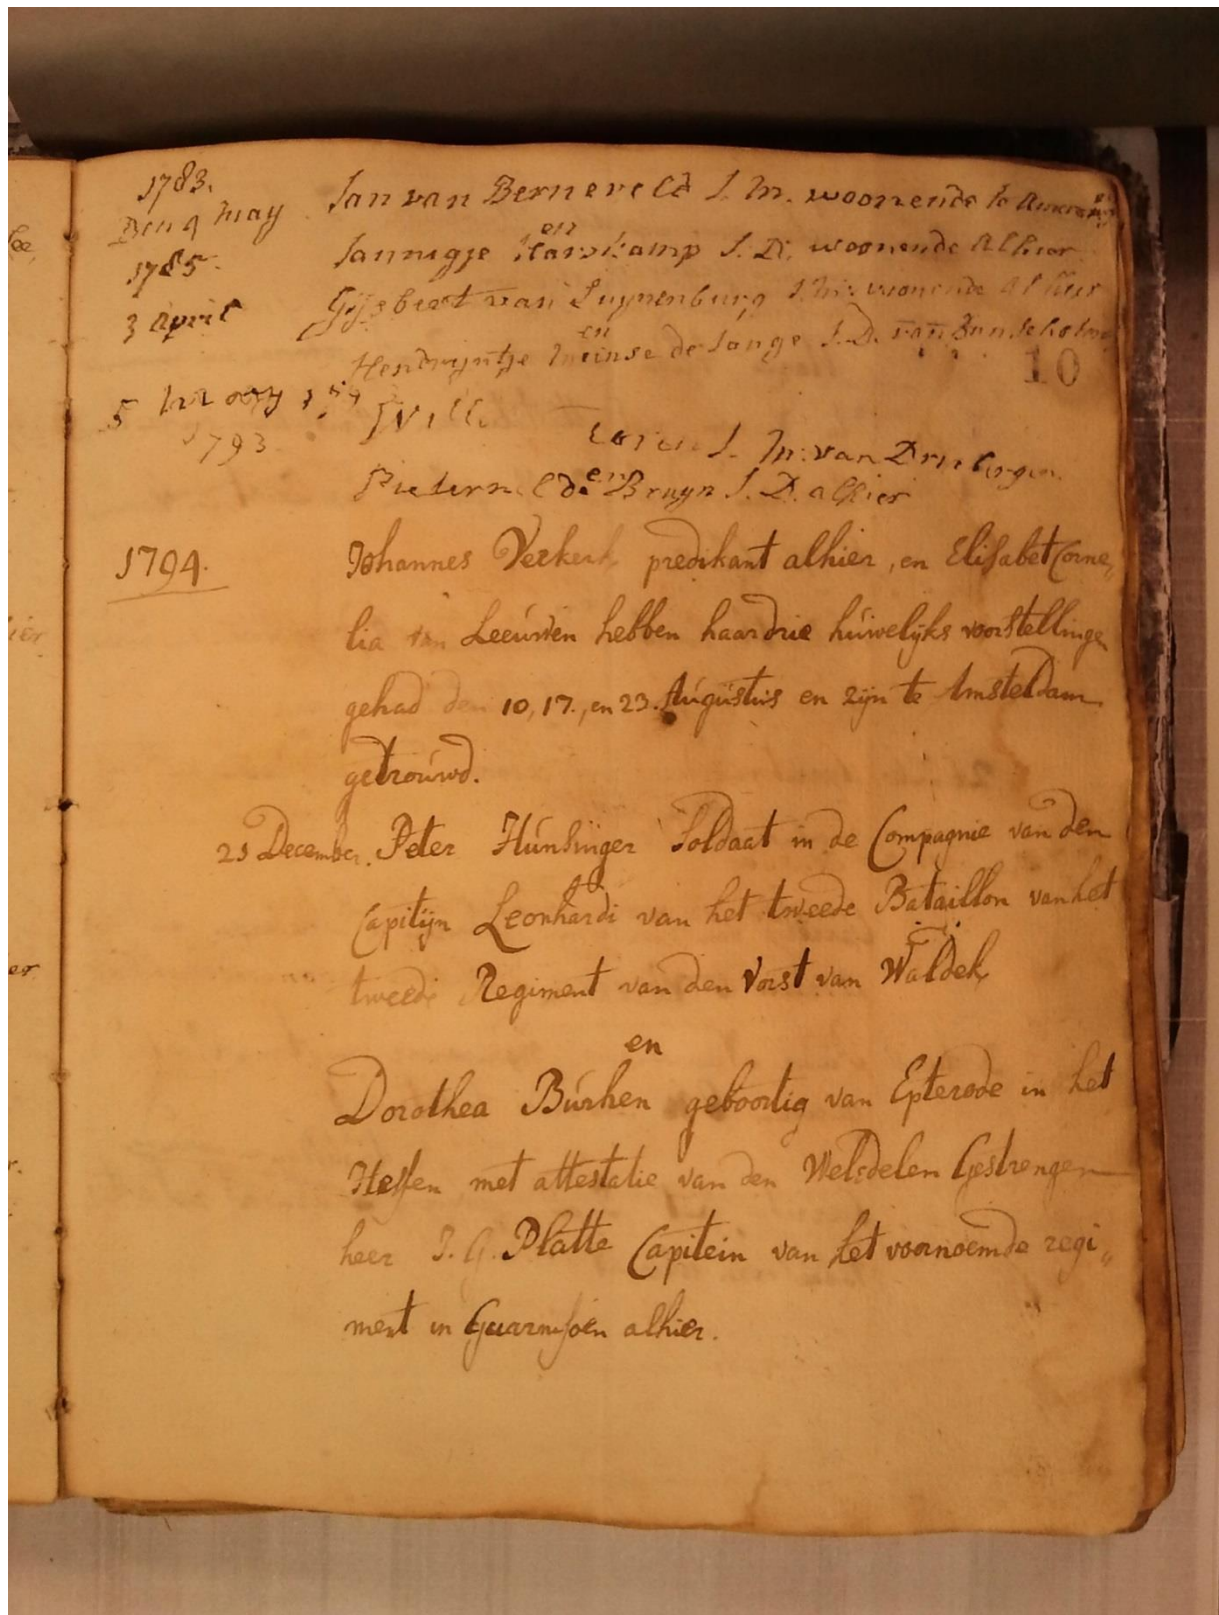 1783.
Den 9 may
Jan van Berneveld J. M. woonende te
en
Jannigje Harskamp J. D. woonende alhier
1785
3 april
Gijsbert van Luynenburg J. M. woonende alhier
en
Hendrijntje Meinse de Lange J. D. van Bunschoten
10
5
1793
Will
J. M. van Driebergen
en
de Bruyn J. D. alhier
1794.
Johannes Verkerk predikant alhier, en Elisabet Corne„
lia van Leeúwen hebben haar drie húwelijks voorstellinge
gehad den 10, 17., en 23. Aúgústús en zijn te Amsteldam
getroúwd.
25 December. Peter Húnsinger Soldaat in de Compagnie van den
Capitijn Leonhardi van het tweede Bataillon van het
tweede Regiment van den Vorst van Waldek
en
Dorothea Búrhen geboortig van Epterode in het
Hessen met attestatie van den Weledelen Gestrengen
heer J. G. Platte Capitein van het voornoemde regi„
ment in Guarnisoen alhier.